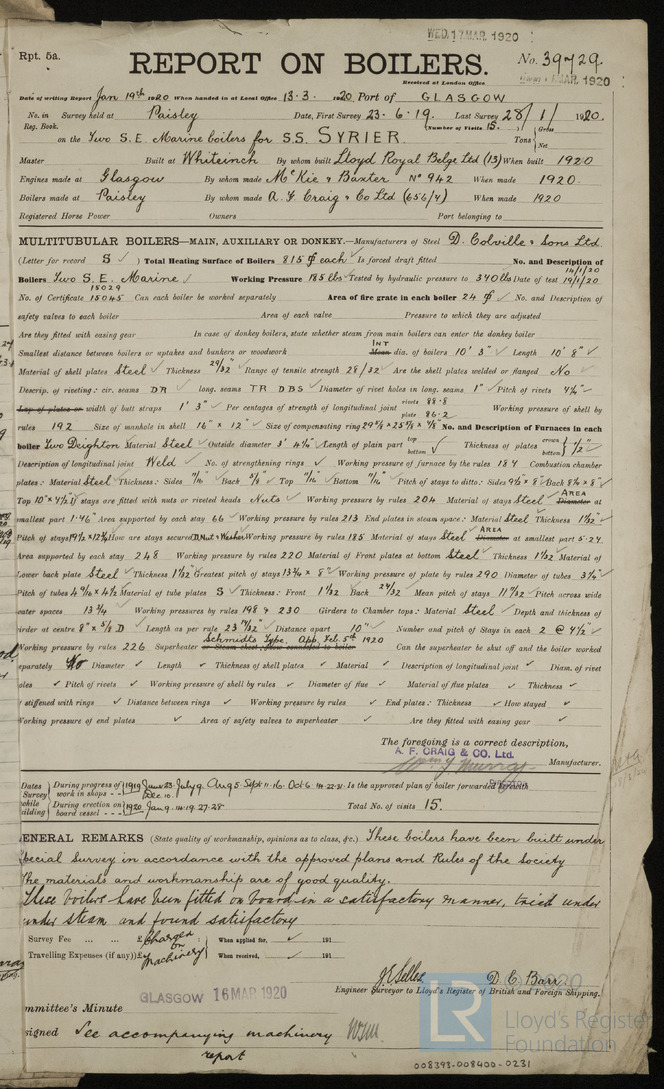 WED. 17 MAR. 1920
Rpt. 5a.
REPORT ON BOILERS.
No. 39729.
Received at London Office
MAR. 1920
Date of writing Report Jan 19th 1920 When handed in at Local Office 13.3. 1920 Port of GLASGOW
No. in Survey held at Paisley Date, First Survey 23.6.19. Last Survey 28/1/ 1920.
Reg. Book. (Number of Visits 15.) Gross
on the Two S.E. Marine boilers for S.S. SYRIER Tons Net
Master Built at Whiteinch By whom built Lloyd Royal Belge Ltd (13) When built 1920
Engines made at Glasgow By whom made McKie & Baxter No 942 When made 1920.
Boilers made at Paisley By whom made A. F. Craig & Co Ltd (656/4) When made 1920
Registered Horse Power Owners Port belonging to
MULTITUBULAR BOILERS—MAIN, AUXILIARY OR DONKEY.—Manufacturers of Steel D. Colville & Sons Ltd.
(Letter for record S ✓) Total Heating Surface of Boilers 815 ☐ each ✓ Is forced draft fitted No. and Description of
14/1/20
Boilers Two S.E. Marine ✓ Working Pressure 185 lbs ✓ Tested by hydraulic pressure to 340 lbs Date of test 19/1/20
15029
No. of Certificate 15045 Can each boiler be worked separately Area of fire grate in each boiler 24 ☐ ✓ No. and Description of
safety valves to each boiler Area of each valve Pressure to which they are adjusted
Are they fitted with easing gear In case of donkey boilers, state whether steam from main boilers can enter the donkey boiler
Smallest distance between boilers or uptakes and bunkers or woodwork INT Mean dia. of boilers 10' 3" ✓ Length 10' 8" ✓
Material of shell plates Steel ✓ Thickness 29/32 ✓ Range of tensile strength 28/32 ✓ Are the shell plates welded or flanged No ✓
Descrip. of riveting: cir. seams DR long. seams TR DBS ✓ Diameter of rivet holes in long. seams 1" ✓ Pitch of rivets
Lap of plates or width of butt straps 1' 3" ✓ Per centages of strength of longitudinal joint rivets 88.8 plate 86.2 Working pressure of shell by
rules 192 Size of manhole in shell 16" × 12" ✓ Size of compensating ring No. and Description of Furnaces in each
boiler Two Deighton ✓ Material Steel ✓ Outside diameter Length of plain part top bottom Thickness of plates crown bottom 1/2" ✓
Description of longitudinal joint Weld ✓ No. of strengthening rings ✓ Working pressure of furnace by the rules 187 Combustion chamber
plates: Material Steel ✓ Thickness: Sides 11/16 ✓ Back 5/8" ✓ Top 11/16 ✓ Bottom 11/16 ✓ Pitch of stays to ditto: Sides 9 1/2 × 8 ✓ Back
Top If stays are fitted with nuts or riveted heads Nuts ✓ Working pressure by rules 204 Material of stays Steel AREA Diameter at
smallest part 1.46" Area supported by each stay 66 ✓ Working pressure by rules 213 End plates in steam space: Material Steel Thickness 1 1/32" ✓
Pitch of stays How are stays secured D. Nut & Washer Working pressure by rules 185 Material of stays Steel AREA Diameter at smallest part 5.27
Area supported by each stay 248 Working pressure by rules 220 Material of Front plates at bottom Steel ✓ Thickness 1 1/32 Material of
Lower back plate Steel ✓ Thickness 1 1/32" Greatest pitch of stays 13 3/4 × 8" ✓ Working pressure of plate by rules 290 Diameter of tubes 3 1/4" ✓
Pitch of tubes Material of tube plates S ✓ Thickness: Front 1 1/32 Back 24/32 Mean pitch of stays Pitch across wide
water spaces 13 3/4 Working pressures by rules 198 & 230 Girders to Chamber tops: Material Steel ✓ Depth and thickness of
girder at centre Length as per rule 23 11/32" ✓ Distance apart 10" ✓ Number and pitch of Stays in each 2 @ 7 1/2" ✓
Working pressure by rules 226 Superheater or Steam chest; how connected to boiler Schmidts Type. App. Feb. 5th 1920 Can the superheater be shut off and the boiler worked
separately No Diameter ✓ Length ✓ Thickness of shell plates ✓ Material ✓ Description of longitudinal joint ✓ Diam. of rivet
holes ✓ Pitch of rivets ✓ Working pressure of shell by rules ✓ Diameter of flue ✓ Material of flue plates ✓ Thickness ✓
If stiffened with rings ✓ Distance between rings ✓ Working pressure by rules ✓ End plates: Thickness ✓ How stayed ✓
Working pressure of end plates ✓ Area of safety valves to superheater ✓ Are they fitted with easing gear ✓
The foregoing is a correct description,
A. F. CRAIG & CO. Ltd.
Manufacturer.
DIRECTOR
Dates of Survey while building During progress of work in shops - - 1919 June 23. July 9. Aug 5 Sept 11.16. Oct 6. 14.22.31. Dec 10. Is the approved plan of boiler forwarded herewith
During erection on board vessel - - - 1920 Jan 9. 14.19.27.28 Total No. of visits 15.
GENERAL REMARKS (State quality of workmanship, opinions as to class, &c.) These boilers have been built under
special Survey in accordance with the approved plans and Rules of the Society
The materials and workmanship are of good quality.
These boilers have been fitted on board in a satisfactory manner, tried under
under steam and found satisfactory
Survey Fee ... ... £ Charged on machinery When applied for, ✓ 191
Travelling Expenses (if any) £ When received, ✓ 191
D. C. Barr.
Engineer Surveyor to Lloyd's Register of British and Foreign Shipping.
GLASGOW 16 MAR 1920
Committee's Minute
Assigned See accompanying machinery
report
LR
Lloyd's Register
Foundation
008393-008400-0231